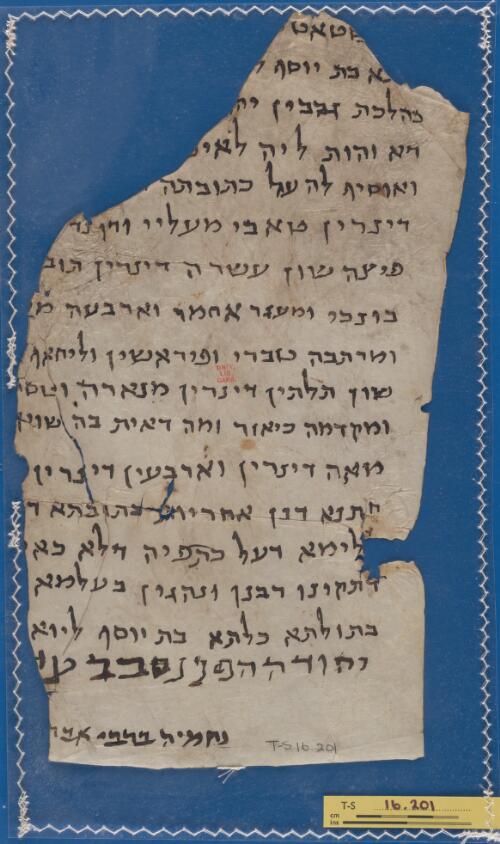 בת יוסף
כהלכת גברין
דא והות ליה לאינ
ואוסיף לה על כתובתה
דינרין טאבי מעליי
פיצה שוין עשרה דינרין תוב
ומעגר אחמר וארבעה
ומרתבה טברי ופיראשין ולחאף
שוין תלתין דינרין מנארה
ומקדמה כיאזר ומה דאית בה שויא
מאה דינרין וארבעין דינרין
חתנא דנן אחריות כתובתא ד
לימא דעל כתפיה דלא כאס
דתקינו רבנן ונהגין בעלמא
בתולתא כלתא בת יוסף ליוא
יהודה הפיננסבב
נחמיה ברבי אבר
UNIV. LIB. CAMB.
T-S 16.201
T-S 16.201
cm
ins